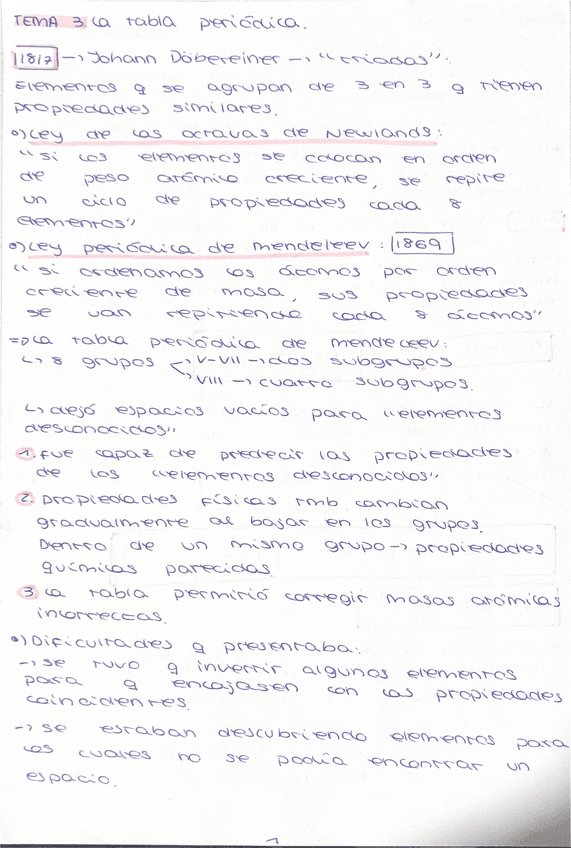 TEMA 3. La tabla periódica.
1817 → Johann Döbereiner → "triadas":
Elementos q se agrupan de 3 en 3 y tienen
propiedades similares.
o) Ley de las octavas de Newlands:
"si los elementos se colocan en orden
de peso atómico creciente, se repite
un ciclo de propiedades cada 8
elementos"
o) Ley periódica de mendeleev: 1869
"si ordenamos los átomos por orden
creciente de masa, sus propiedades
se van repitiendo cada 8 átomos"
⇒ La tabla periódica de mendeleev:
↳ 8 grupos V-VII → dos subgrupos
VIII → cuatro subgrupos.
↳ dejó espacios vacíos para "elementos
desconocidos"
1. Fue capaz de predecir las propiedades
de los "elementos desconocidos"
2. Propiedades físicas tmb cambian
gradualmente al bajar en los grupos.
Dentro de un mismo grupo → propiedades
químicas parecidas.
3. La tabla permitió corregir masas atómicas
incorrectas.
o) Dificultades q presentaba:
→ se tuvo q invertir algunos elementos
para q encajasen con las propiedades
coincidentes.
→ se estaban descubriendo elementos para
los cuales no se podía encontrar un
espacio.
1